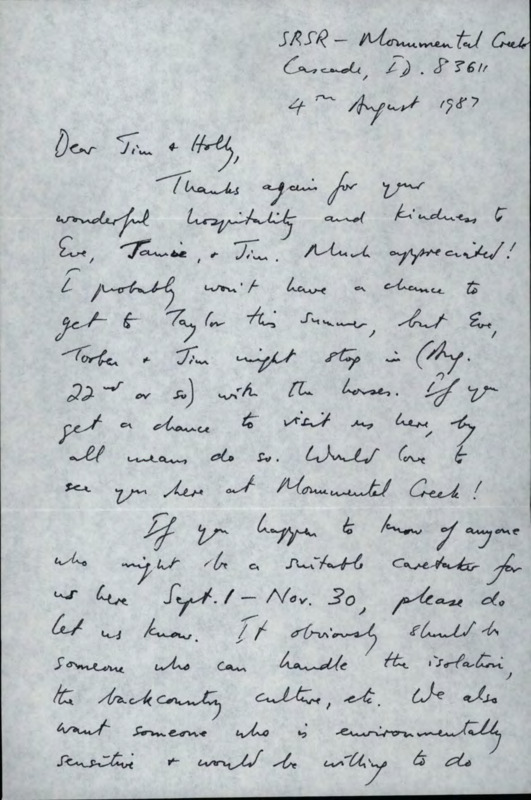 SRSR - Monumental Creek
Cascade, ID. 83611
4th August 1987
Dear Jim + Holly,
Thanks again for your
wonderful hospitality and kindness to
Eve, Jamie, + Jim. Much appreciated!
I probably won't have a chance to
get to Taylor this summer, but Eve,
Torben + Jim might stop in (Aug.
22nd or so) with the horses. If you
get a chance to visit us here, by
all means do so. Would love to
see you here at Monumental Creek!
If you happen to know of anyone
who might be a suitable caretaker for
us here Sept. 1 - Nov. 30, please do
let us know. It obviously should be
someone who can handle the isolation,
the backcountry culture, etc. We also
want someone who is environmentally
sensitive + would be willing to do